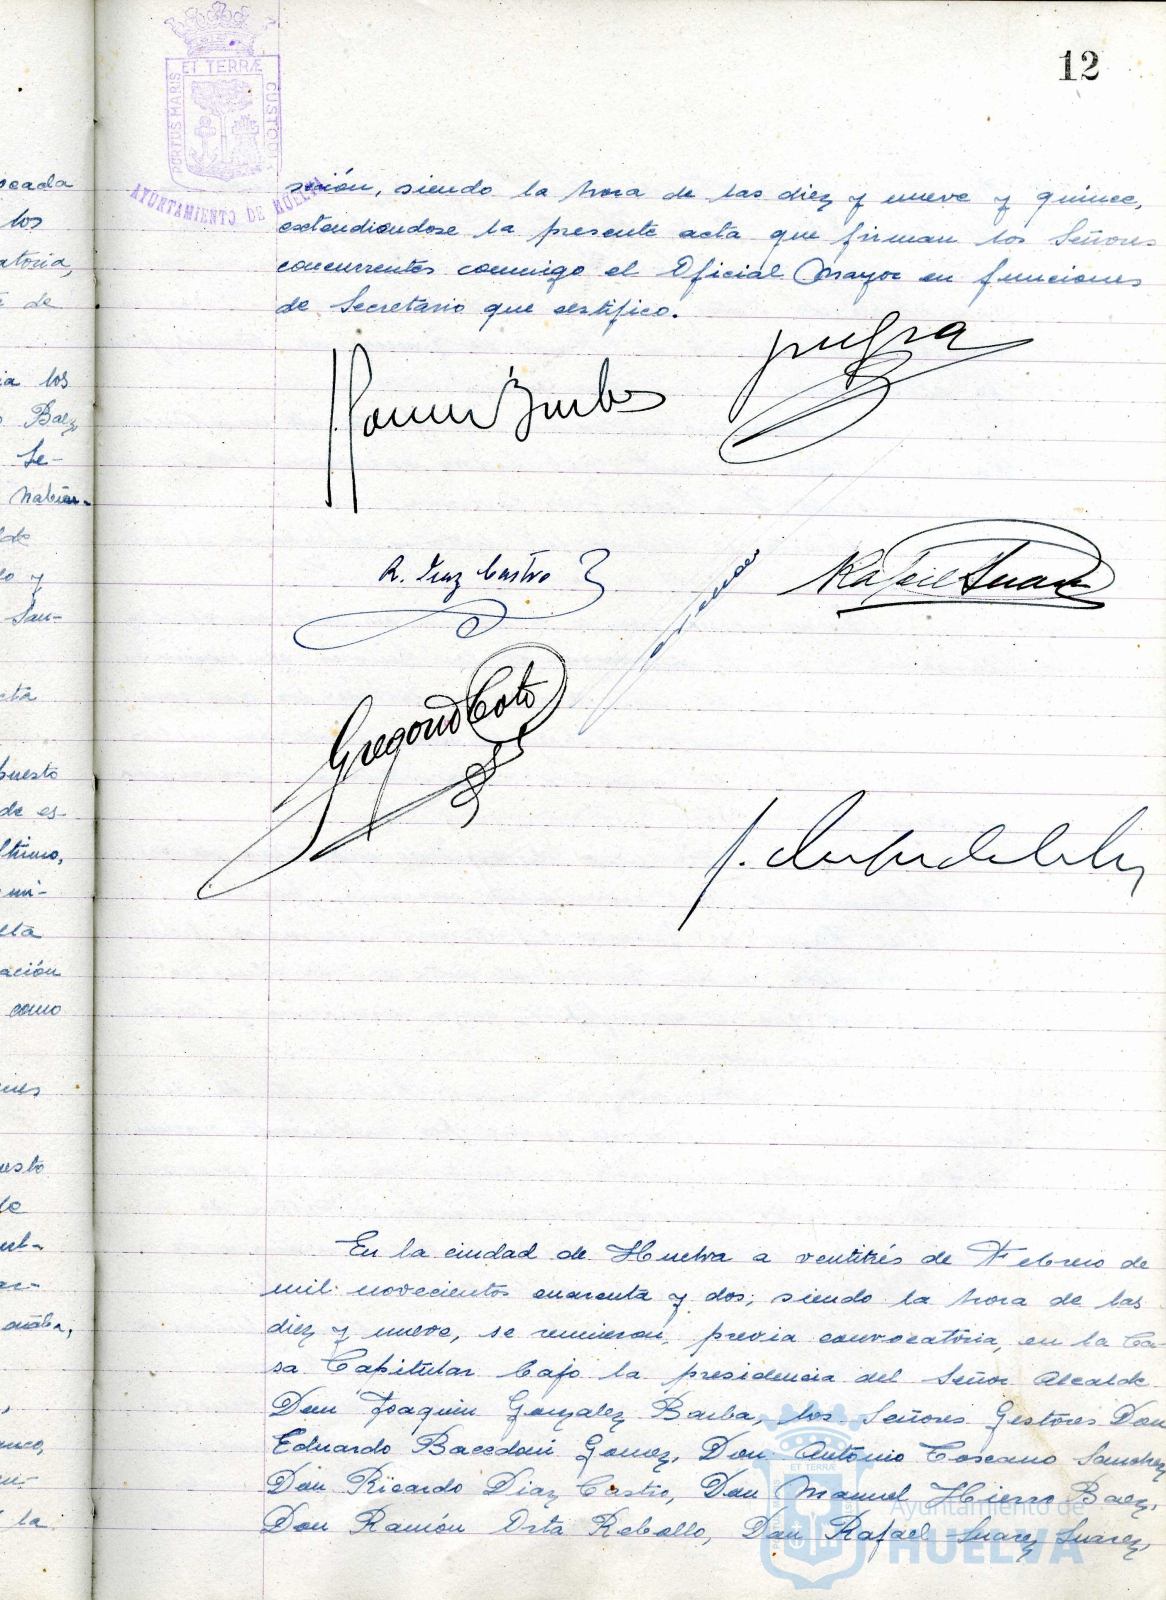 12
PORTUS MARIS
ET TERRÆ
CUSTODI
AYUNTAMIENTO DE HUELVA
sesión, siendo la hora de las diez y nueve y quince,
extendiendose la presente acta que firman los Señores
concurrentes conmigo el Oficial Mayor en funciones
de Secretario que certifico.
R. Diaz Castro
Rafael Suarez
Gregorio Coto
En la ciudad de Huelva a ventitrés de Febrero de
mil novecientos cuarenta y dos; siendo la hora de las
diez y nueve, se reunieron, previa convocatoria, en la Ca-
sa Capitular bajo la presidencia del Señor Alcalde
Don Joaquin Gonzalez Barba, los Señores Gestores Don
Eduardo Bacedoni Gomez, Don Antonio Toscano Sanchez
Don Ricardo Diaz Castro, Don Manuel Hierro Baez,
Don Ramón Orta Rebollo, Don Rafael Suarez Suárez,
Ayuntamiento de
HUELVA
ocada
los
atoria,
de
ia los
Baez,
Se-
y
San-
puesto
de es-
ación
como
la